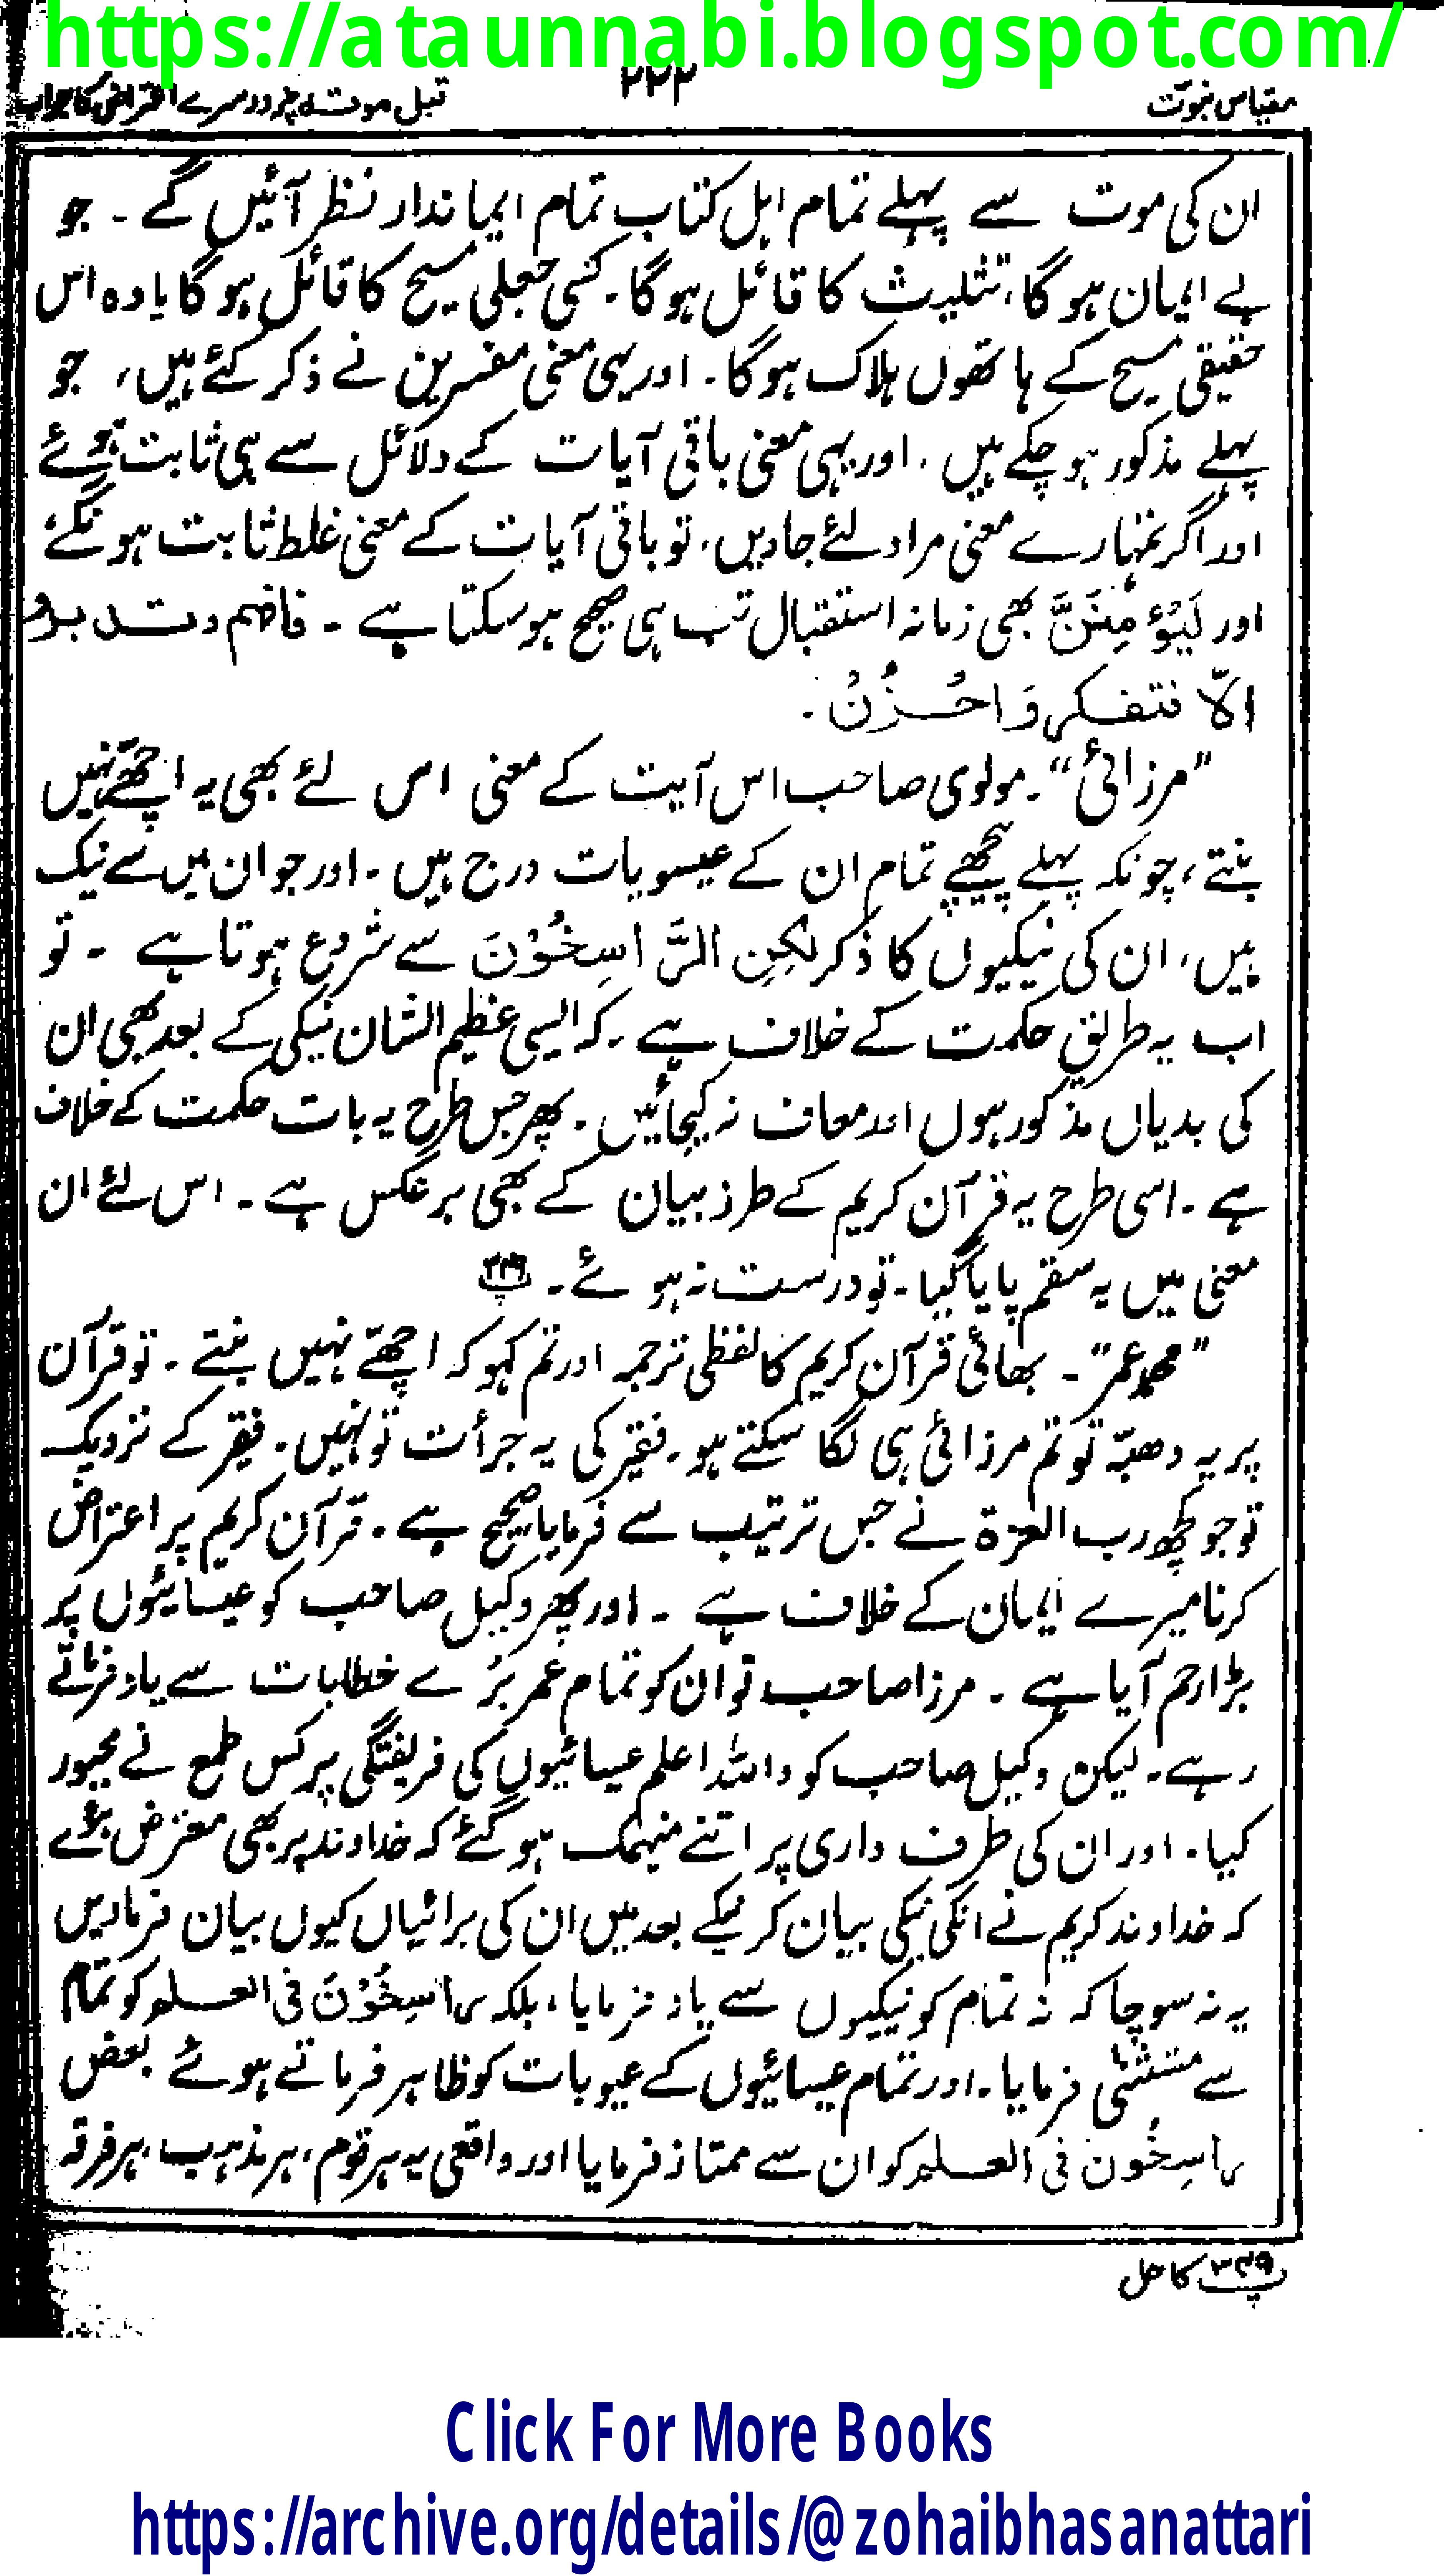 https://ataunnabi.blogspot.com/
مقیاس نبوّت
۲۲۲
قبل موتہ پر دوسرے اعتراض کا جواب
ان کی موت سے پہلے تمام اہل کتاب تمام ایماندار نظر آئیں گے ۔ جو
بے ایمان ہو گا، تثلیث کا قائل ہو گا ۔ کسی جعلی مسیح کا قائل ہو گا یا وہ اس
حقیقی مسیح کے ہاتھوں ہلاک ہو گا ۔ اور یہی معنی مفسرین نے ذکر کئے ہیں، جو
پہلے مذکور ہو چکے ہیں ، اور یہی معنی باقی آیات کے دلائل سے ہی ثابت ہوئے
اور اگر تمہارے معنی مراد لئے جاویں، تو باقی آیات کے معنی غلط ثابت ہونگے،
اور لَیُؤْمِنَنَّ بھی زمانہ استقبال تب ہی صحیح ہو سکتا ہے ۔ فافہم وتدبرو
الّا فتفکر وَاحُزُنُ ۔
”مرزائی“۔ مولوی صاحب اس آیت کے معنی اس لئے بھی یہ اچھے نہیں
بنتے، چونکہ پہلے پیچھے تمام ان کے عیسوبات درج ہیں ۔ اور جو ان میں سے نیک
ہیں، ان کی نیکیوں کا ذکر لٰکِنِ الرَّاسِخُوْنَ سے شروع ہوتا ہے ۔ تو
اب یہ طریق حکمت کے خلاف ہے ۔ کہ ایسی عظیم الشان نیکی کے بعد بھی ان
کی بدیاں مذکور ہوں اور معاف نہ کیجائیں ۔ پھر جس طرح یہ بات حکمت کے خلاف
ہے ۔ اسی طرح یہ قرآن کریم کے طرز بیان کے بھی برعکس ہے ۔ اس لئے ان
معنی میں یہ سقم پایا گیا ۔ تو درست نہ ہوئے ۔ پ۳۴۹
”محمد عمر“ ۔ بھائی قرآن کریم کا لفظی ترجمہ اور تم کہو کہ اچھے نہیں بنتے ۔ تو قرآن
پر یہ دھبّہ تو تم مرزائی ہی لگا سکتے ہو ۔ فقیر کی یہ جرأت تو نہیں ۔ فقیر کے نزدیک
تو جو کچھ رب العزۃ نے جس ترتیب سے فرمایا صحیح ہے ۔ قرآن کریم پر اعتراض
کرنا میرے ایمان کے خلاف ہے ۔ اور پھر وکیل صاحب کو عیسائیوں پر
بڑا رحم آیا ہے ۔ مرزا صاحب تو ان کو تمام عمر بُرے خطابات سے یاد فرماتے
رہے ۔ لیکن وکیل صاحب کو واللہ اعلم عیسائیوں کی فریفتگی پر کس طمع نے مجبور
کیا ۔ اور ان کی طرف داری پر اتنے منہمک ہو گئے کہ خداوند پر بھی معترض بڑے
کہ خداوند کریم نے انکی نیکی بیان کر نیکے بعد میں ان کی برائیاں کیوں بیان فرمادیں
یہ نہ سوچا کہ نہ تمام کو نیکیوں سے یاد فرمایا ، بلکہ راسِخُوْنَ فی العلم کو تمام
سے مستثنٰی فرمایا ۔ اور تمام عیسائیوں کے عیوبات کو ظاہر فرماتے ہوئے بعض
راسِخُون فی العلم کو ان سے ممتاز فرمایا اور واقعی یہ ہر قوم، ہر مذہب، ہر فرقہ
پ۳۴۹ کا حل
Click For More Books
https://archive.org/details/@zohaibhasanattari